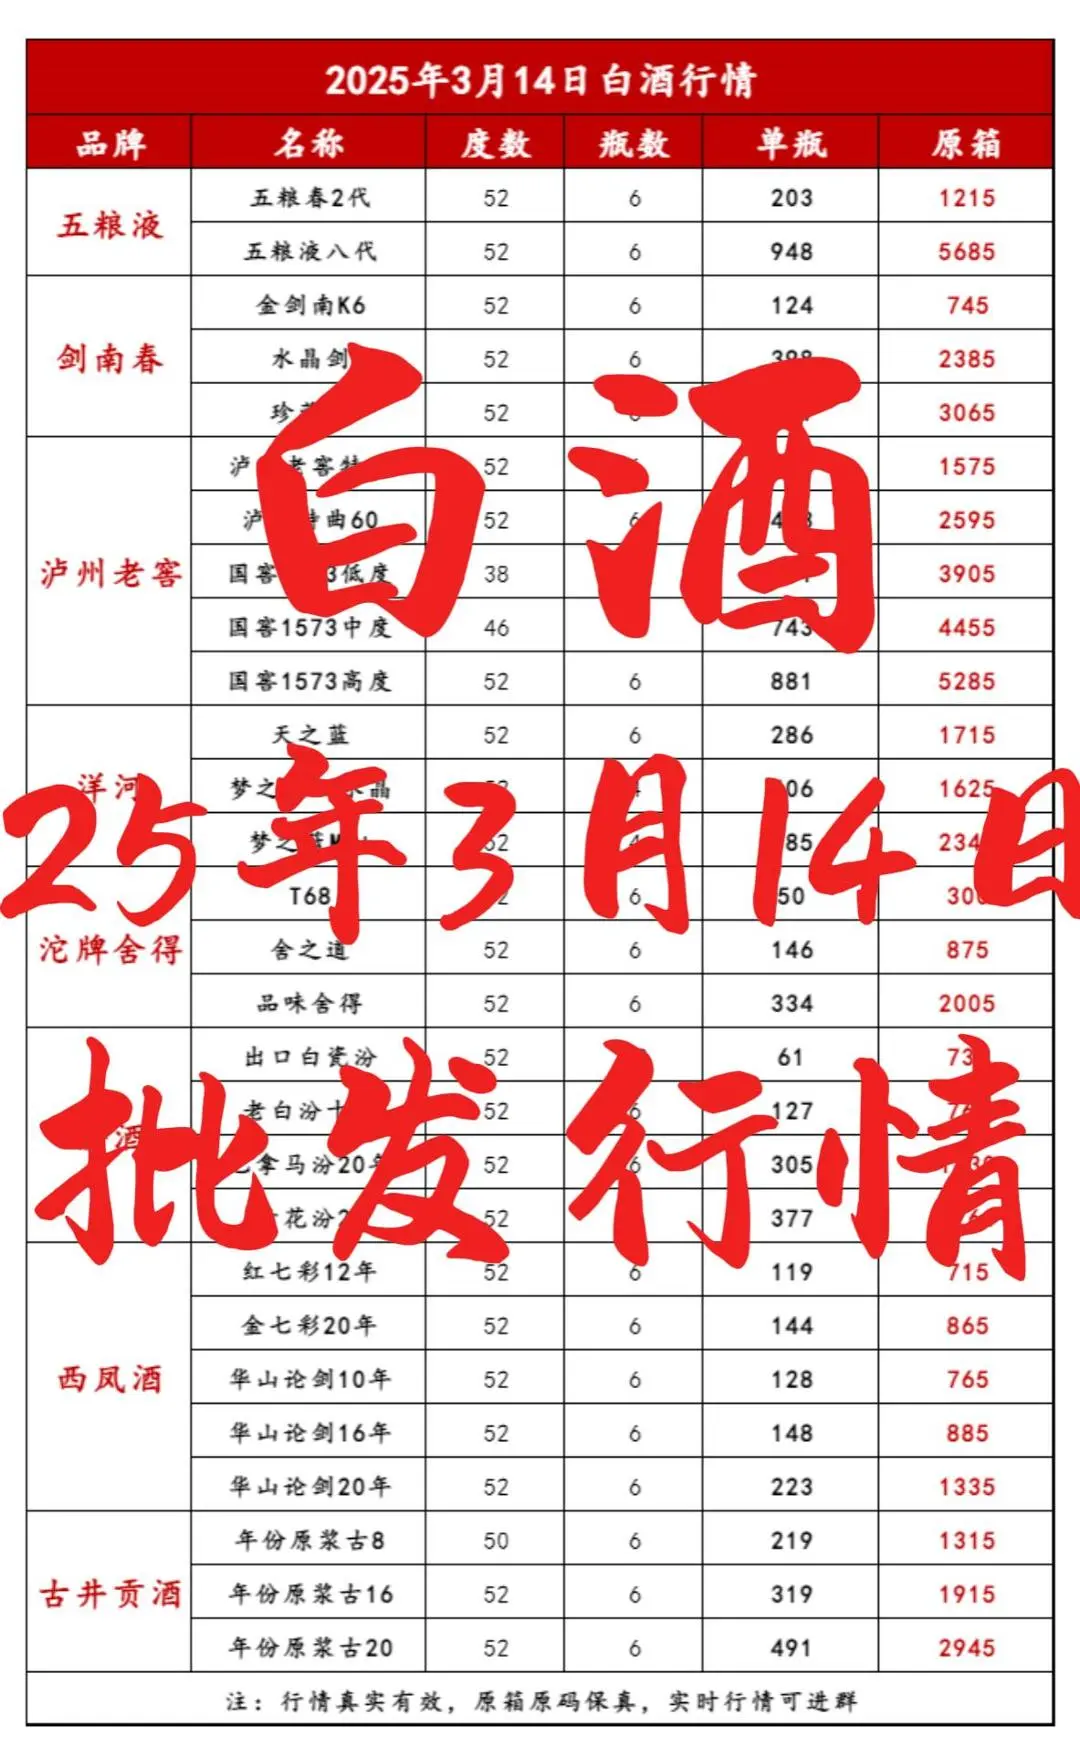 2025年3月14日白酒行情
品牌 名称 度数 瓶数 单瓶 原箱
五粮液
五粮春2代 52 6 203 1215
五粮液八代 52 6 948 5685
剑南春
金剑南K6 52 6 124 745
水晶剑 52 6 398 2385
珍 52 3065
泸州老窖
泸 老窖特 52 1575
泸 特曲60 52 6 2595
国窖 3低度 38 3905
国窖1573中度 46 743 4455
国窖1573高度 52 6 881 5285
洋河
天之蓝 52 6 286 1715
梦之 水晶 52 4 06 1625
梦之蓝M 52 4 85 234
沱牌舍得
T68 6 50 300
舍之道 52 6 146 875
品味舍得 52 6 334 2005
酒
出口白瓷汾 52 61 73
老白汾十 52 6 127 76
巴拿马汾20年 52 6 305
花汾2 52 6 377
西凤酒
红七彩12年 52 6 119 715
金七彩20年 52 6 144 865
华山论剑10年 52 6 128 765
华山论剑16年 52 6 148 885
华山论剑20年 52 6 223 1335
古井贡酒
年份原浆古8 50 6 219 1315
年份原浆古16 52 6 319 1915
年份原浆古20 52 6 491 2945
注：行情真实有效，原箱原码保真，实时行情可进群
白酒
25年3月14日
批发行情